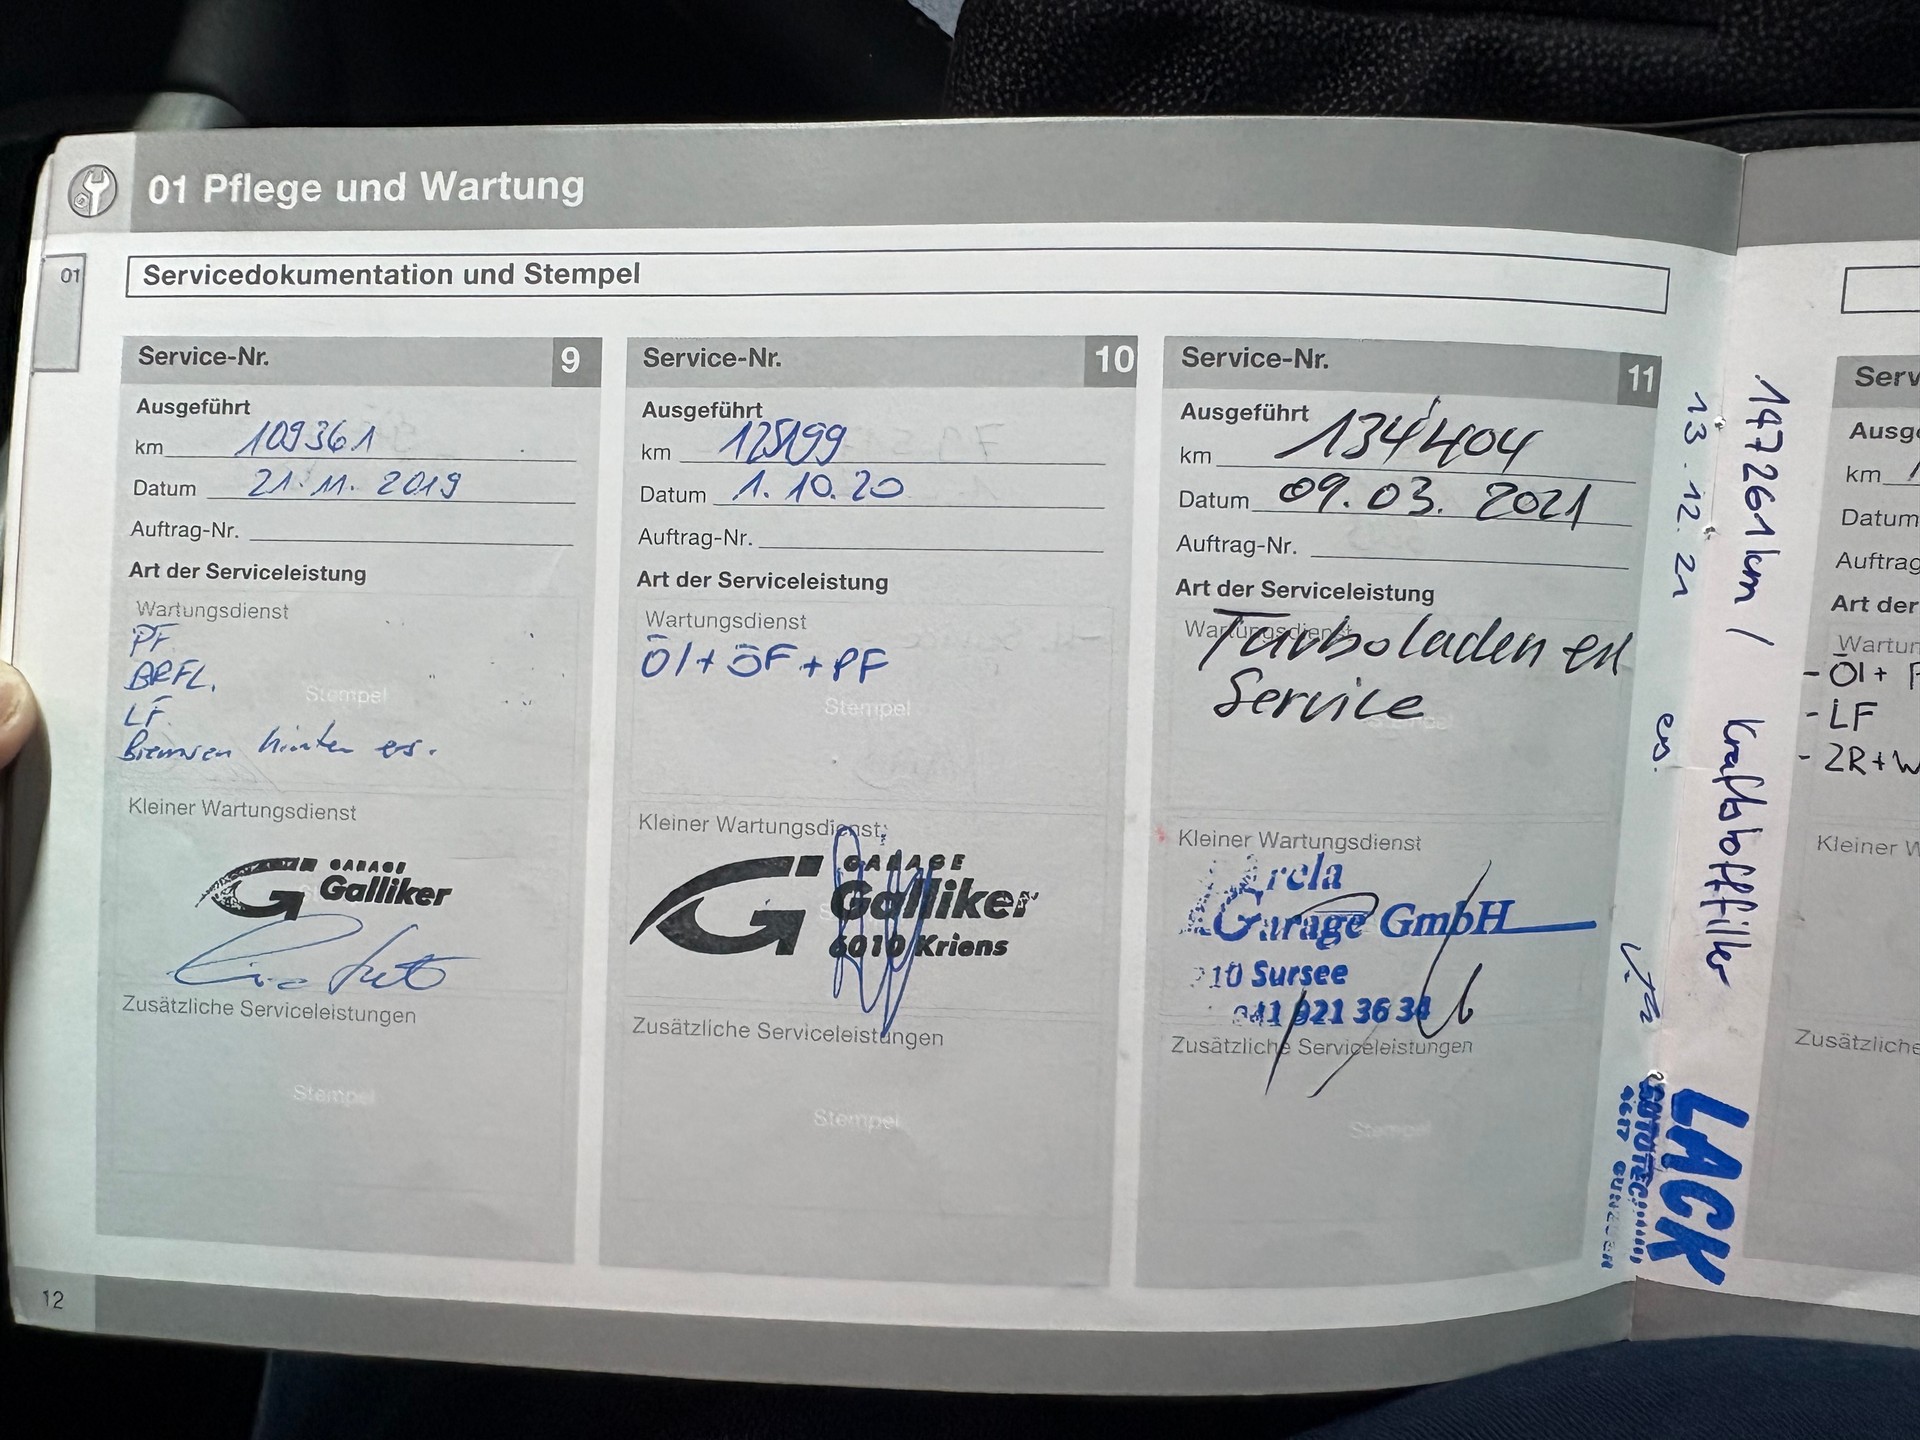 01 Pflege und Wartung
01
Servicedokumentation und Stempel
Service-Nr. 9
Ausgeführt
km 109361
Datum 21.11.2019
Auftrag-Nr.
Art der Serviceleistung
Wartungsdienst
PF
BRFL.
LF
Bremsen hinten er.
Stempel
Kleiner Wartungsdienst
GARAGE
Galliker
Zusätzliche Serviceleistungen
Stempel
Service-Nr. 10
Ausgeführt
km 125199
Datum 1.10.20
Auftrag-Nr.
Art der Serviceleistung
Wartungsdienst
Öl + ÖF + PF
Stempel
Kleiner Wartungsdienst
GARAGE
Galliker
6010 Kriens
Zusätzliche Serviceleistungen
Stempel
Service-Nr. 11
Ausgeführt
km 134404
Datum 09.03.2021
Auftrag-Nr.
Art der Serviceleistung
Wartungsdienst
Turboladen er
Service
Stempel
Kleiner Wartungsdienst
Arela
Garage GmbH
210 Sursee
041 921 36 34
Zusätzliche Serviceleistungen
Stempel
147261km / Kraftstofffilter
13.12.21 er.
LACK
Serv
Ausg
km
Datum
Auftrag
Art der
Wartun
- Öl +
- LF
- ZR + W
Kleiner W
Zusätzliche
12